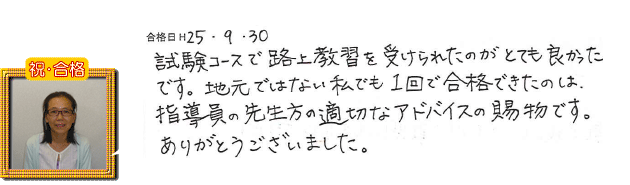 合格日 H25・9・30
祝・合格
試験コースで路上教習を受けられたのがとても良かった
です。地元ではない私でも1回で合格できたのは、
指導員の先生方の適切なアドバイスの賜物です。
ありがとうございました。